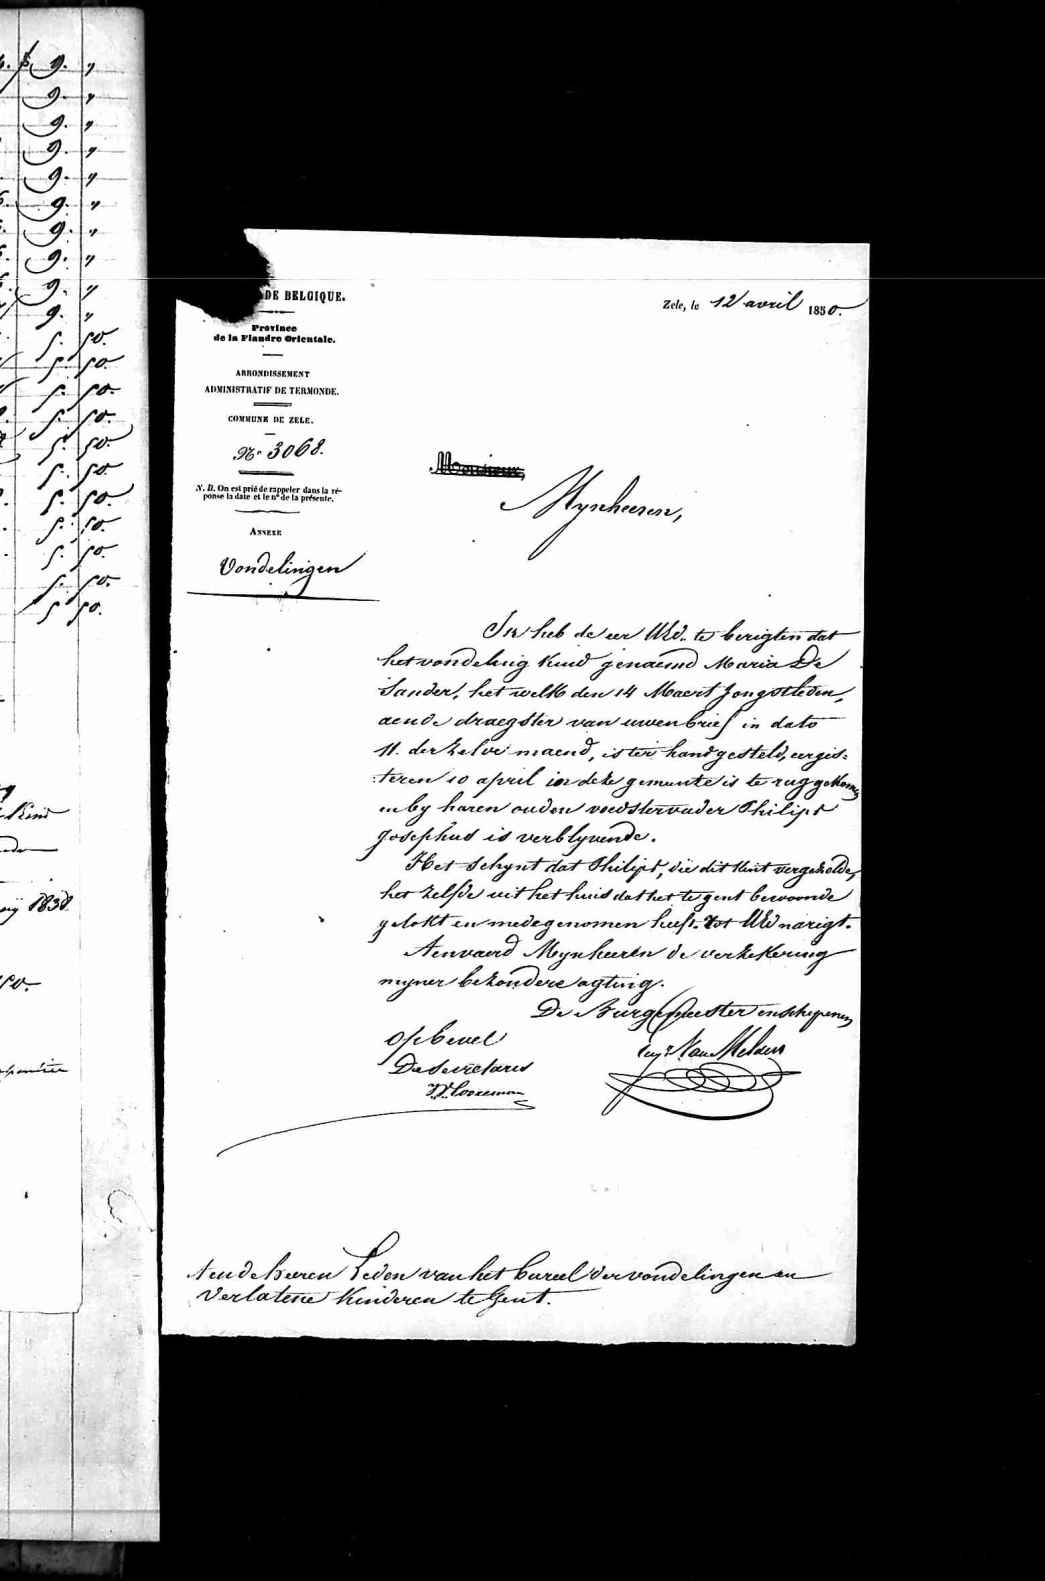 9. "
9. "
9. "
9. "
9. "
9. "
9. "
9. "
9. "
9. "
5. 50.
5. 50.
5. 50.
5. 50.
5. 50.
5. 50.
5. 50.
5. 50.
5. 50.
5. 50.
5 50.
Kind
1838
50.
DE BELGIQUE.
Province
de la Flandre Orientale.
ARRONDISSEMENT
ADMINISTRATIF DE TERMONDE.
COMMUNE DE ZELE.
No. 3068.
N. B. On est prié de rappeler dans la ré-
ponse la date et le no de la présente.
ANNEXE
Vondelingen
Zele, le 12 avril 1850.
Monsieur,
Mynheeren,
Ik heb de eer UEd. te berigten dat
het vondeling kind genaemd Maria De
Sander, het welk den 14 Maert jongstleden,
aen de draegster van uwen brief in dato
11. der zelve maend, is ter hand gesteld, eergis:
:teren 10 april in deze gemeente is te rug gekomen
en by haren ouden voedstervader Philipt
Josephus is verblyvende.
Het schynt dat Philipt, die dit kint vergezelde,
het zelfde uit het huis dat het te gent bewoonde
gelokt en medegenomen heeft. Tot UEd narigt.
Aenvaerd Mynheeren de verzekering
myner bezondere agting.
De Burgemeester en schepenen
Op bevel
De Secretaris
Aen de heeren Leden van het bureel der vondelingen en
Verlatene Kinderen te Gent.